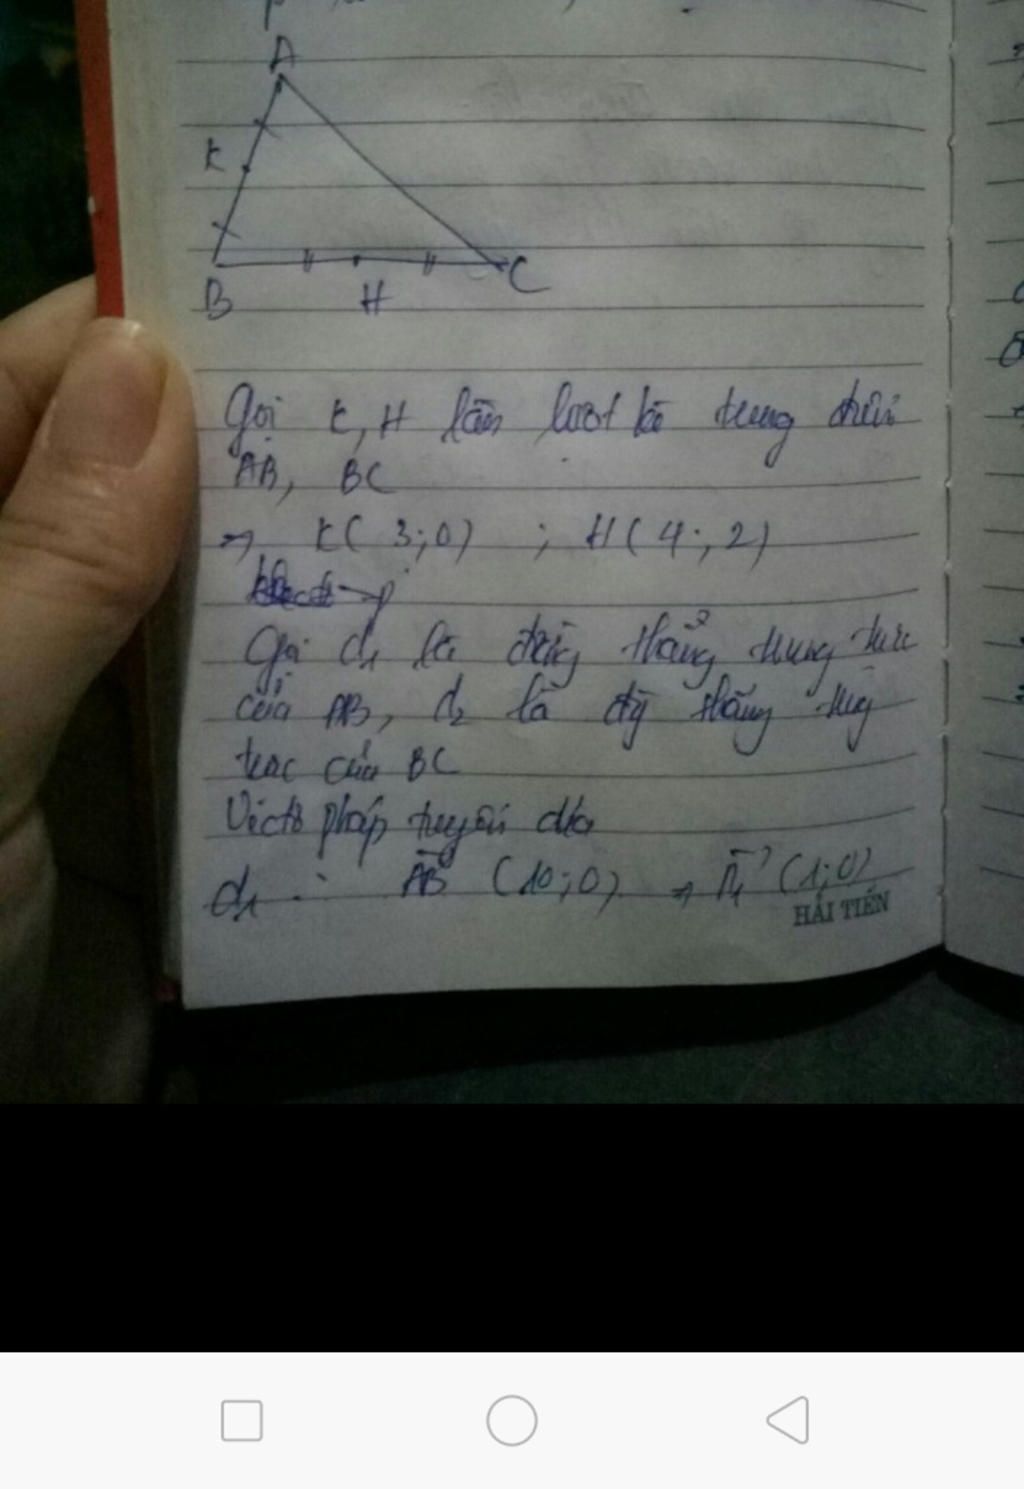 A
K
B
H
C
Gọi K, H lần lượt là trung điểm
AB, BC
⇒ K( 3;0) ; H( 4; 2)
Gọi d₁ là đường thẳng trung trực
của AB, d₂ là đg thẳng
trực của BC
Vectơ pháp tuyến của
d₁ : AB (10;0) ⇒ n₁ (1;0)
HẢI TIẾN